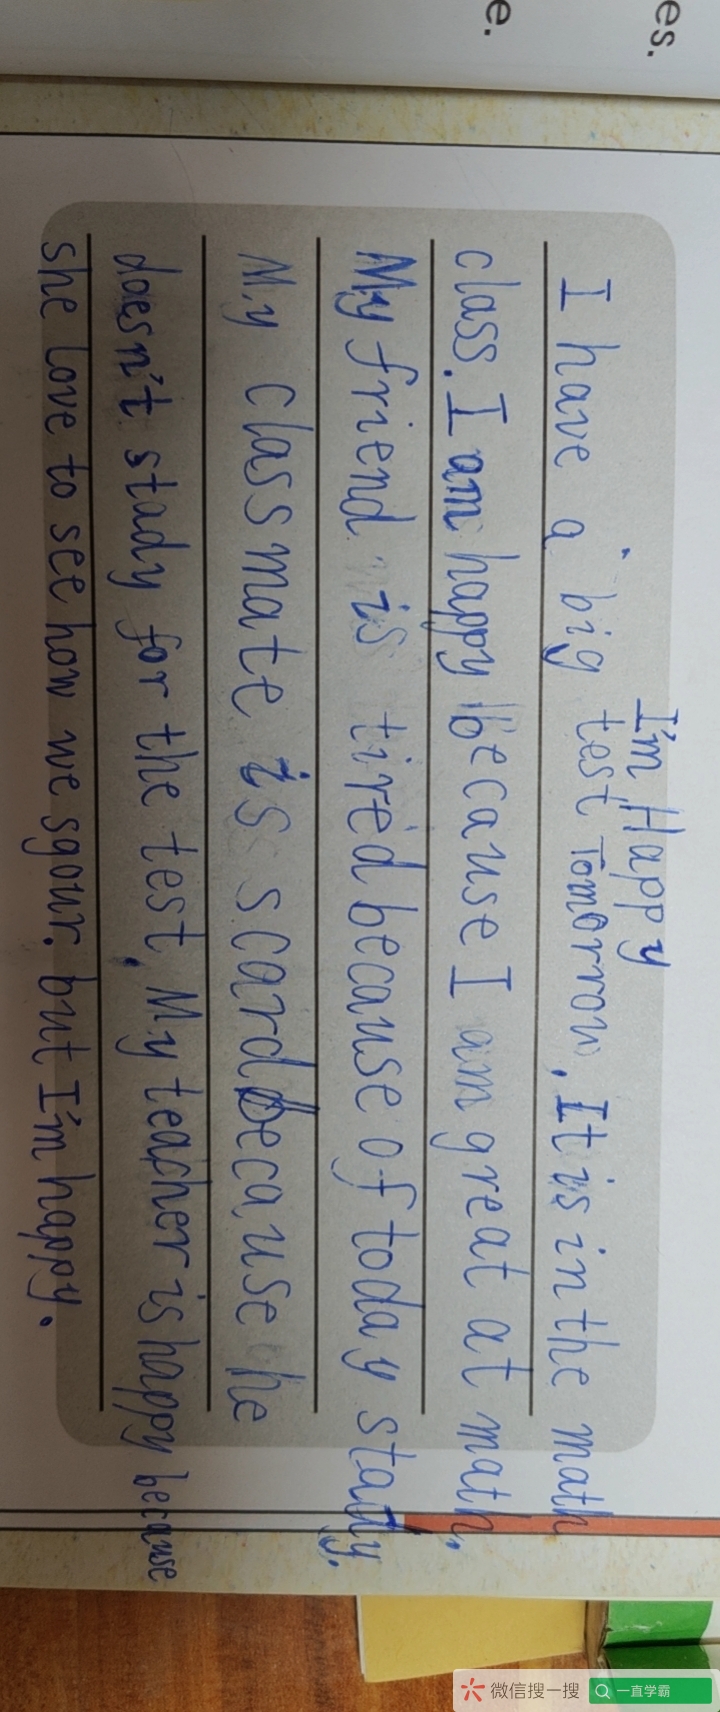 es.
e.
I'm Happy
I have a big test Tomorrow, It is in the math
class. I am happy because I am great at math.
My friend is tired because of today stady.
My classmate is scard because he
doesn't stady for the test. My teacher is happy because
she love to see how we sgour. but I'm happy.
微信搜一搜 一直学霸